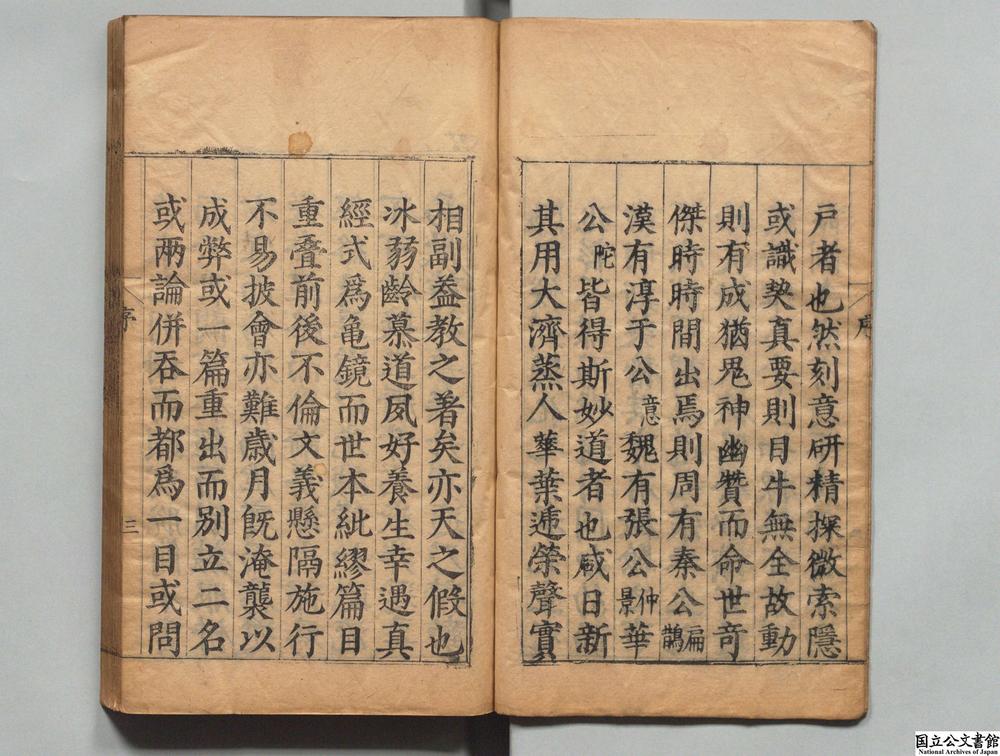 戶者也然刻意研精探微索隱
或識契真要則目牛無全故動
則有成猶鬼神幽贊而命世奇
傑時時間出焉則周有秦公扁鵲
漢有淳于公意魏有張公仲景華
公佗皆得斯妙道者也咸日新
其用大濟蒸人華葉遞榮聲實
序
相副蓋教之著矣亦天之假也
冰弱齡慕道夙好養生幸遇真
經式爲龜鏡而世本紕繆篇目
重疊前後不倫文義懸隔施行
不易披會亦難歲月既淹襲以
成弊或一篇重出而別立二名
或兩論併吞而都爲一目或問
序
三
国立公文書館
National Archives of Japan